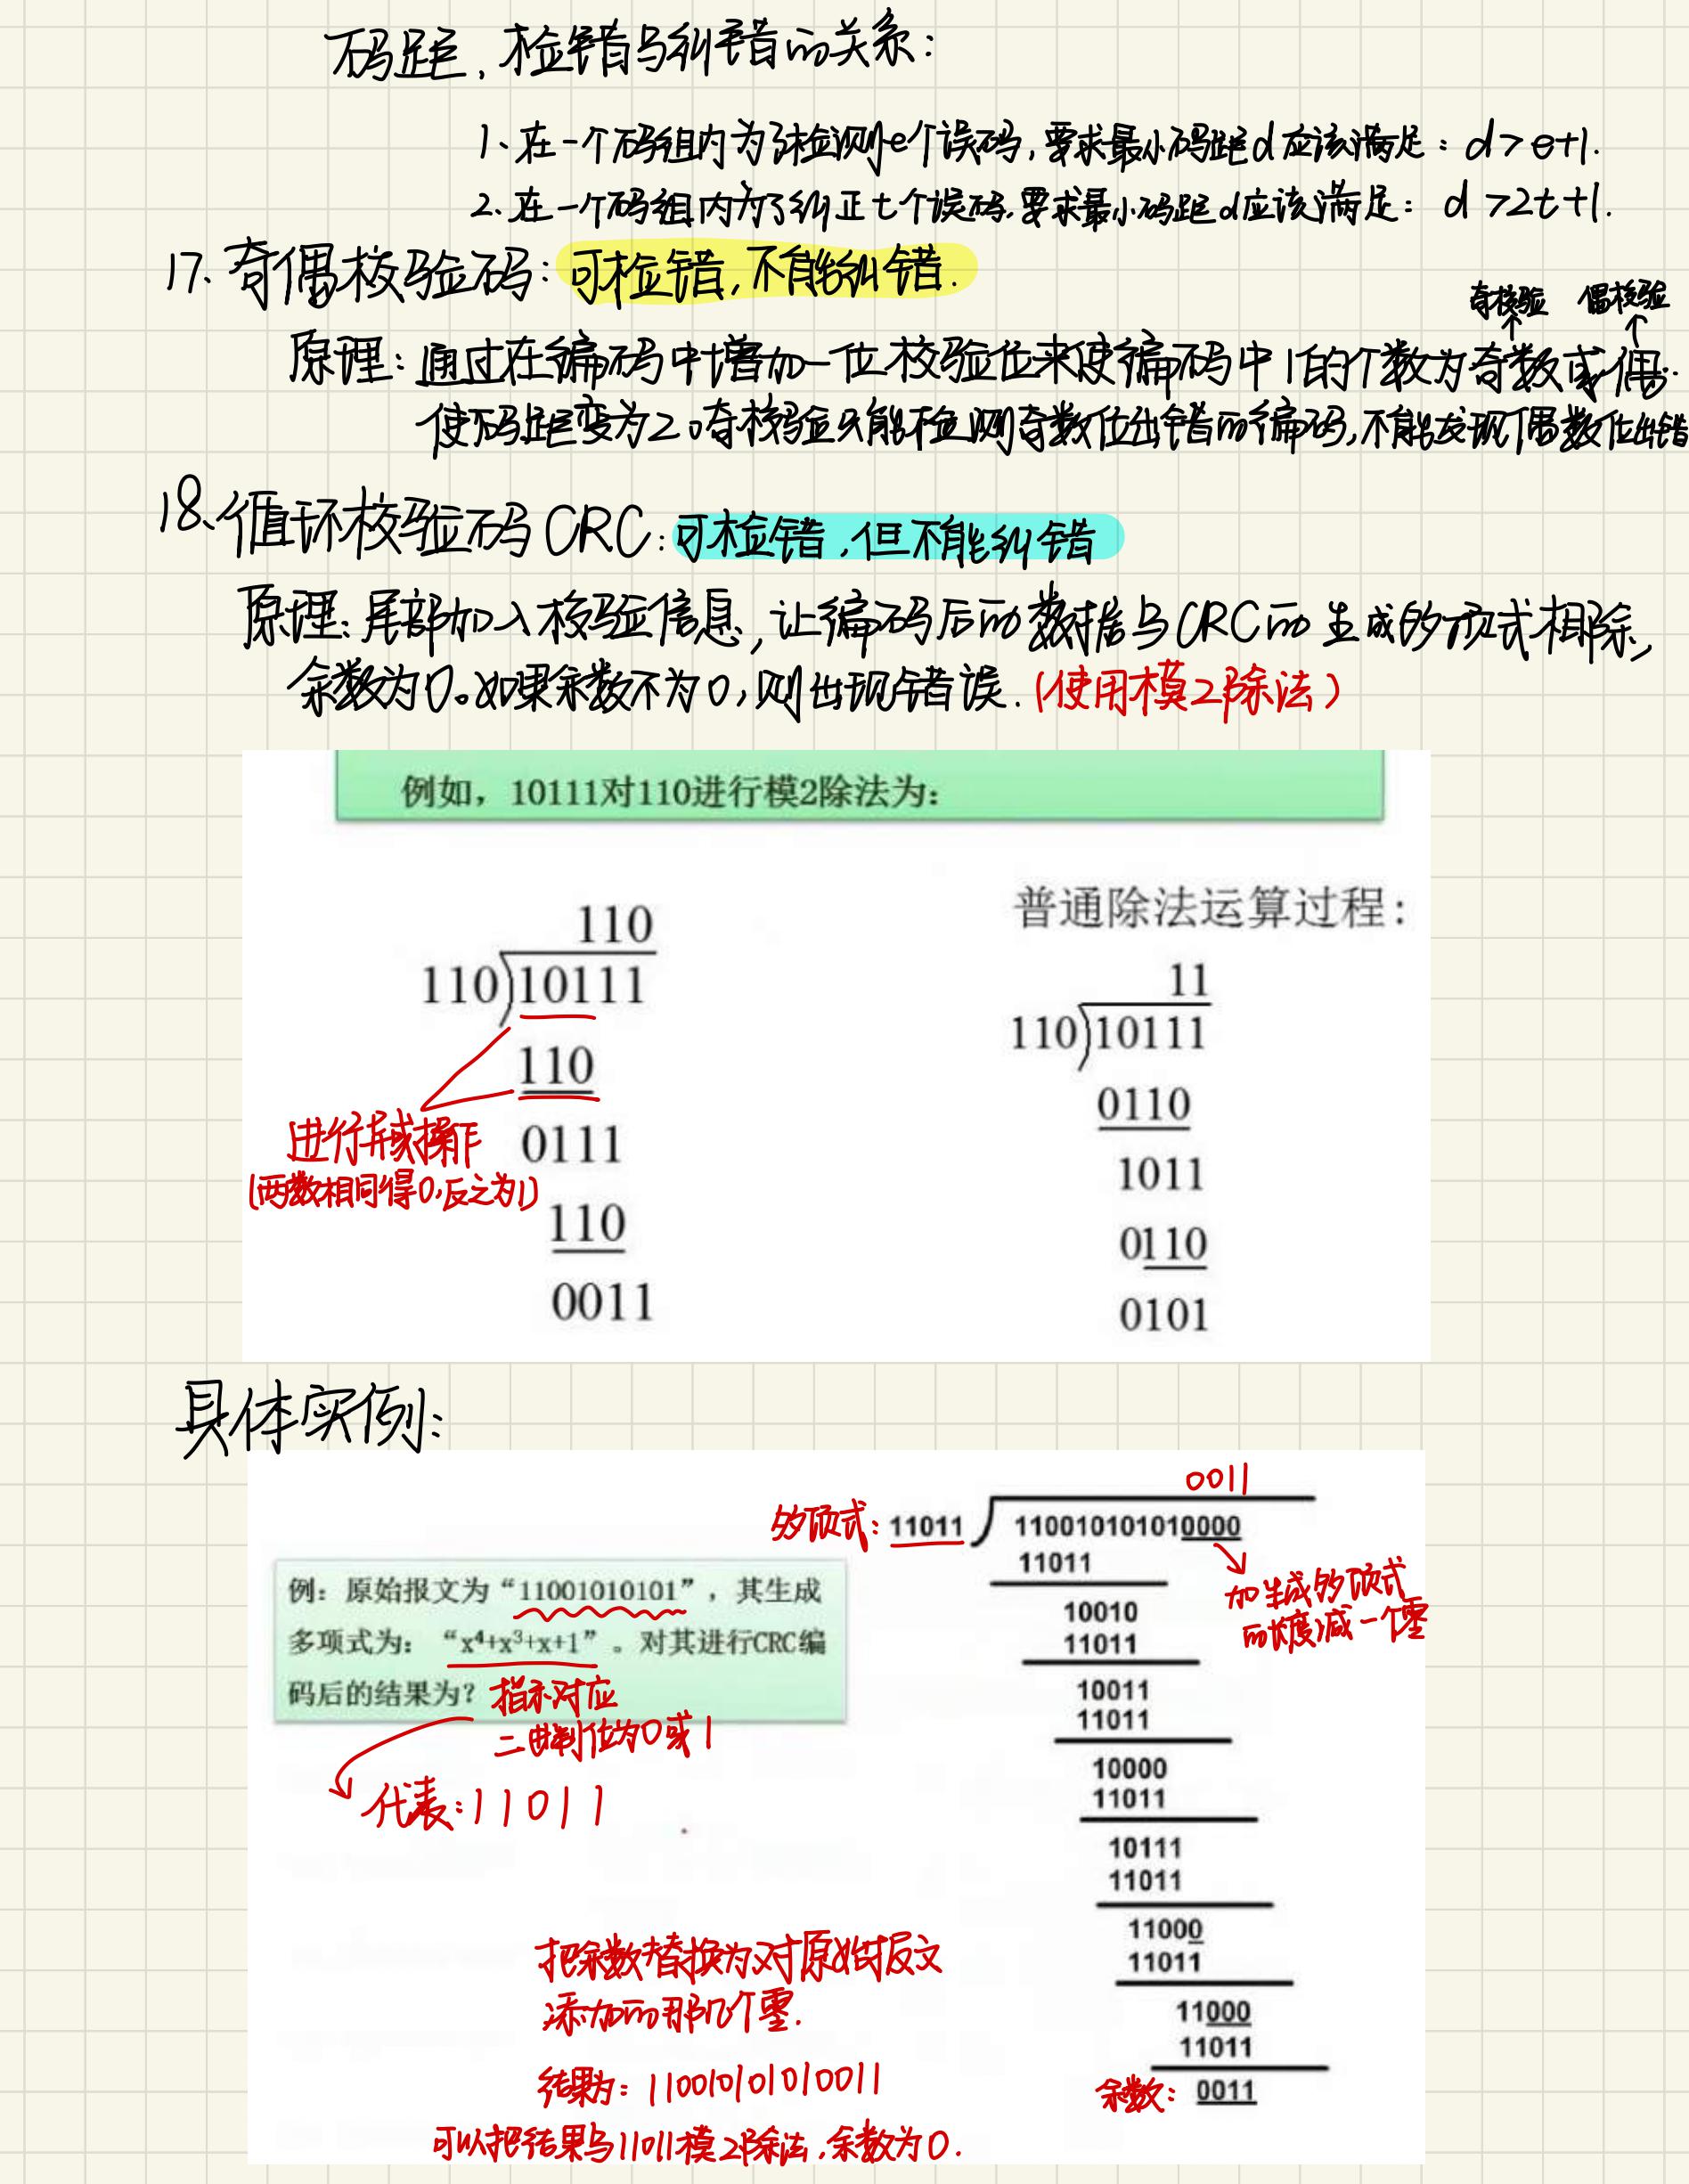 码距,检错与纠错的关系:
1、在一个码组内为了检测e个误码,要求最小码距d应该满足:d>e+1.
2、在一个码组内为了纠正t个误码,要求最小码距d应该满足:d>2t+1.
17、奇偶校验码:可检错,不能纠错.
奇校验 偶校验
原理:通过在编码中增加一位校验位来使编码中1的个数为奇数或偶.
使码距变为2。奇校验只能检测奇数位出错的编码,不能发现偶数位出错
18、循环校验码CRC:可检错,但不能纠错
原理:尾部加入校验信息,让编码后的数据与CRC的生成的项式相除,
余数为0。如果余数不为0,则出现错误.(使用模2除法)
例如,10111对110进行模2除法为:
110
110)10111
110
0111
110
0011
进行异或操作
(两数相同得0,反之为1)
普通除法运算过程:
11
110)10111
0110
1011
0110
0101
具体实例:
例:原始报文为“11001010101”,其生成
多项式为:“x⁴+x³+x+1”。对其进行CRC编
码后的结果为?
指示对应
二进制位为0或1
代表:11011
0011
多项式:11011 110010101010000
11011
加生成多项式
的长度减一个零
10010
11011
10011
11011
10000
11011
10111
11011
11000
11011
11000
11011
余数:0011
把余数替换为对原始报文
添加的那几个零.
结果为:110010101010011
可以把结果与11011模2除法,余数为0.